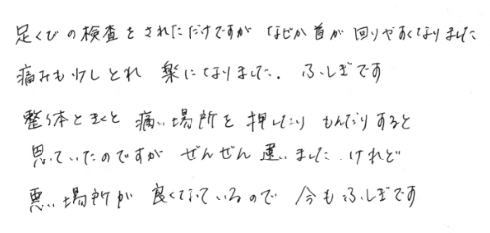 足くびの検査をされただけですが なぜか首が回りやすくなりました
痛みも少しとれ 楽になりました。 ふしぎです
整体ときくと 痛い場所を押したり もんだりすると
思っていたのですが ぜんぜん違いました けれど
悪い場所が 良くなっているので 今もふしぎです